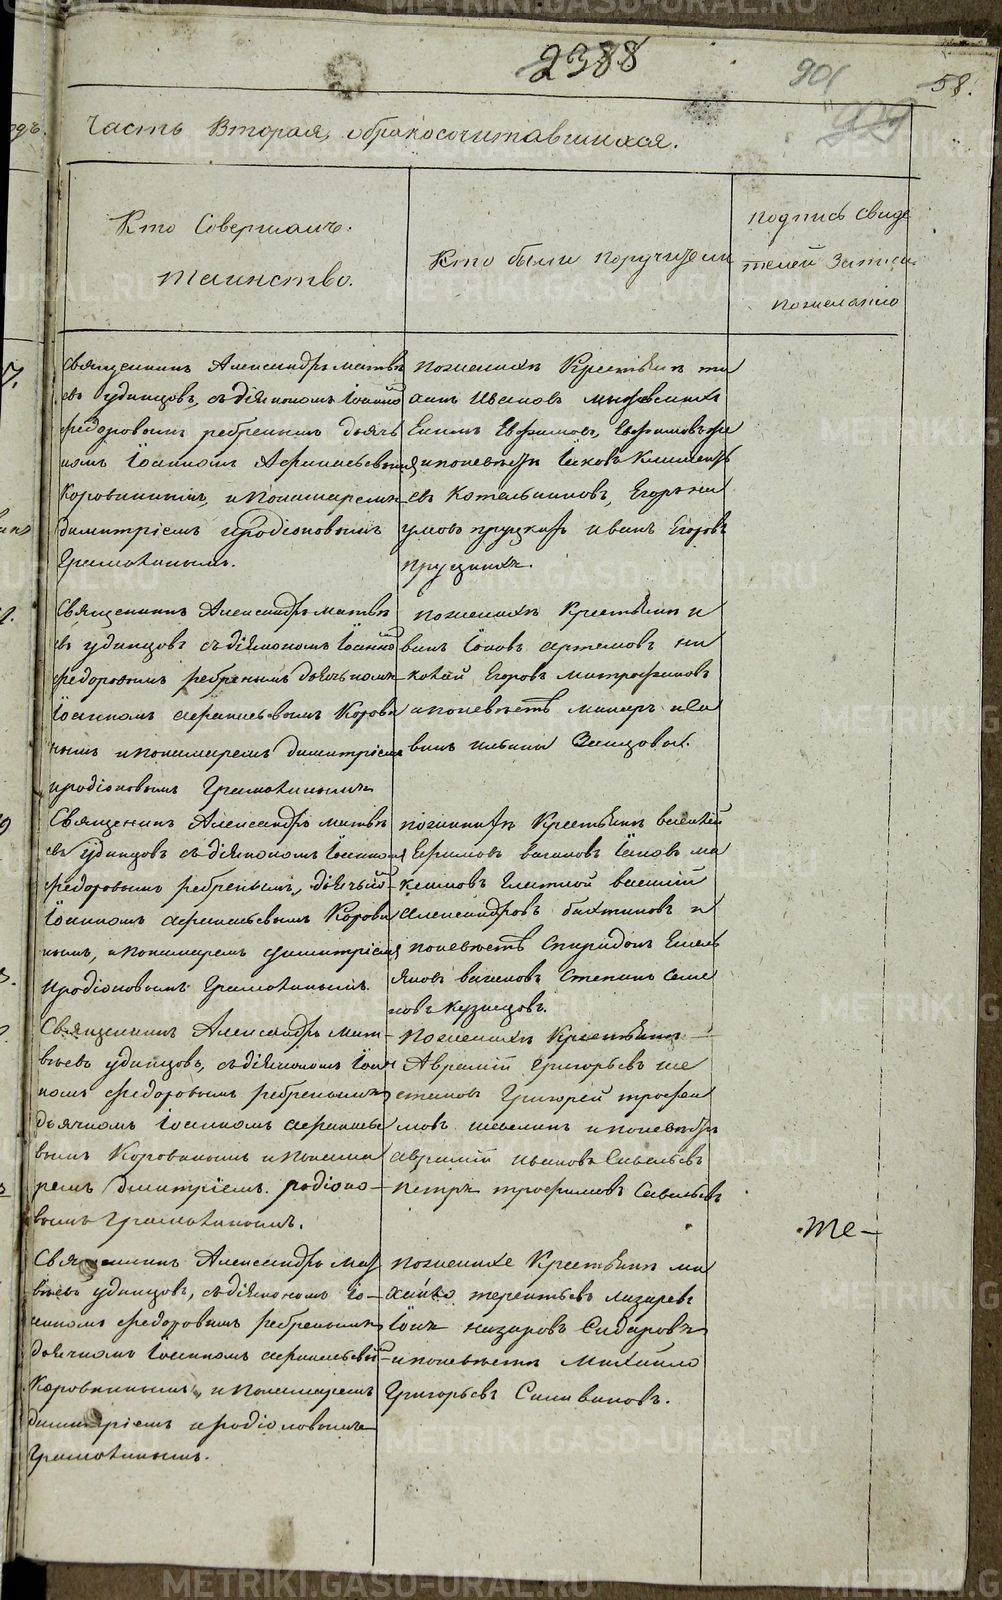 2388
901
58.
Часть Вторая, обракосочитавшихся.
Кто Совершалъ.
Таинство.
Кто были поручители
подпись свиде
телей записи
пожеланію
Священникъ Александръ матвѣ
евъ удинцовъ, съ діякономъ Іоанно
федоровымъ ребренымъ дьячь
комъ Іоанномъ Афанасьевымъ
Коровинымъ, и Пономаремъ
димитріемъ иродіоновымъ
Грамотинымъ.
поженихѣ Крестьяне
Иванов
Екимъ Ефимовъ,
поневѣсте Іяковъ Климентьев
евъ Котельниковъ, Егоръ на
умовъ пруцкихъ иванъ Егоровъ
пруцкихъ.
Священникъ Александръ матвѣ
евъ удинцовъ съ діякономъ Іоанно
федоровымъ ребренымъ дьячькомъ
Іоанномъ афанасьевымъ Корови
нымъ и пономаремъ димитріемъ
иродіоновымъ Грамотинымъ
поженихѣ Крестьяне и
ванъ Іоновъ артемовъ ни
колай Егоровъ митрофановъ
и поневѣстѣ макаръ и са
винъ ильины Заицовы.
Священникъ Александръ матвѣ
евъ удинцовъ съ діякономъ Іоанномъ
федоровымъ ребренымъ, дьячькомъ
Іоанномъ афанасьевымъ Корови
нымъ, и пономаремъ димитріемъ
иродіоновымъ Грамотинымъ.
поженихѣ Крестьяне василей
Ефимовъ вагановъ Іяковъ ма
ксимовъ Глатной василій
александровъ бахтиновъ и
поневѣстѣ Спиридонъ Емель
яновъ вагановъ Степанъ Семе
новъ кузнецовъ.
Священникъ Александръ мат
вѣевъ удинцовъ, съ діякономъ Іоан
номъ федоровымъ ребренымъ
дьячкомъ Іоанномъ афанасье
вымъ Коровинымъ и Понома
ремъ димитріемъ родіоно
вымъ Грамотинымъ.
Поженихѣ Крестьяне
Аврамій григорьевъ ше
стаковъ Григорей трофи
мовъ шавкинъ и поневѣсте
аврамій ивановъ Савельевъ
Петръ трофимовъ Савельевъ
Священникъ Александръ мат
вѣевъ удинцовъ, съ діякономъ Іо
анномъ федоровымъ ребренымъ
дьячкомъ Іоанномъ афанасьевы
Коровинымъ, и Пономаремъ
димитріемъ иродіоновымъ
Грамотинымъ.
поженихе Крестьяне ми
хайло терентьевъ лазаревъ
Іонъ назаровъ Сидоровъ
и поневѣсте Михайло
Григорьевъ Саливановъ.
те
METRIKI.GASO-URAL.RU